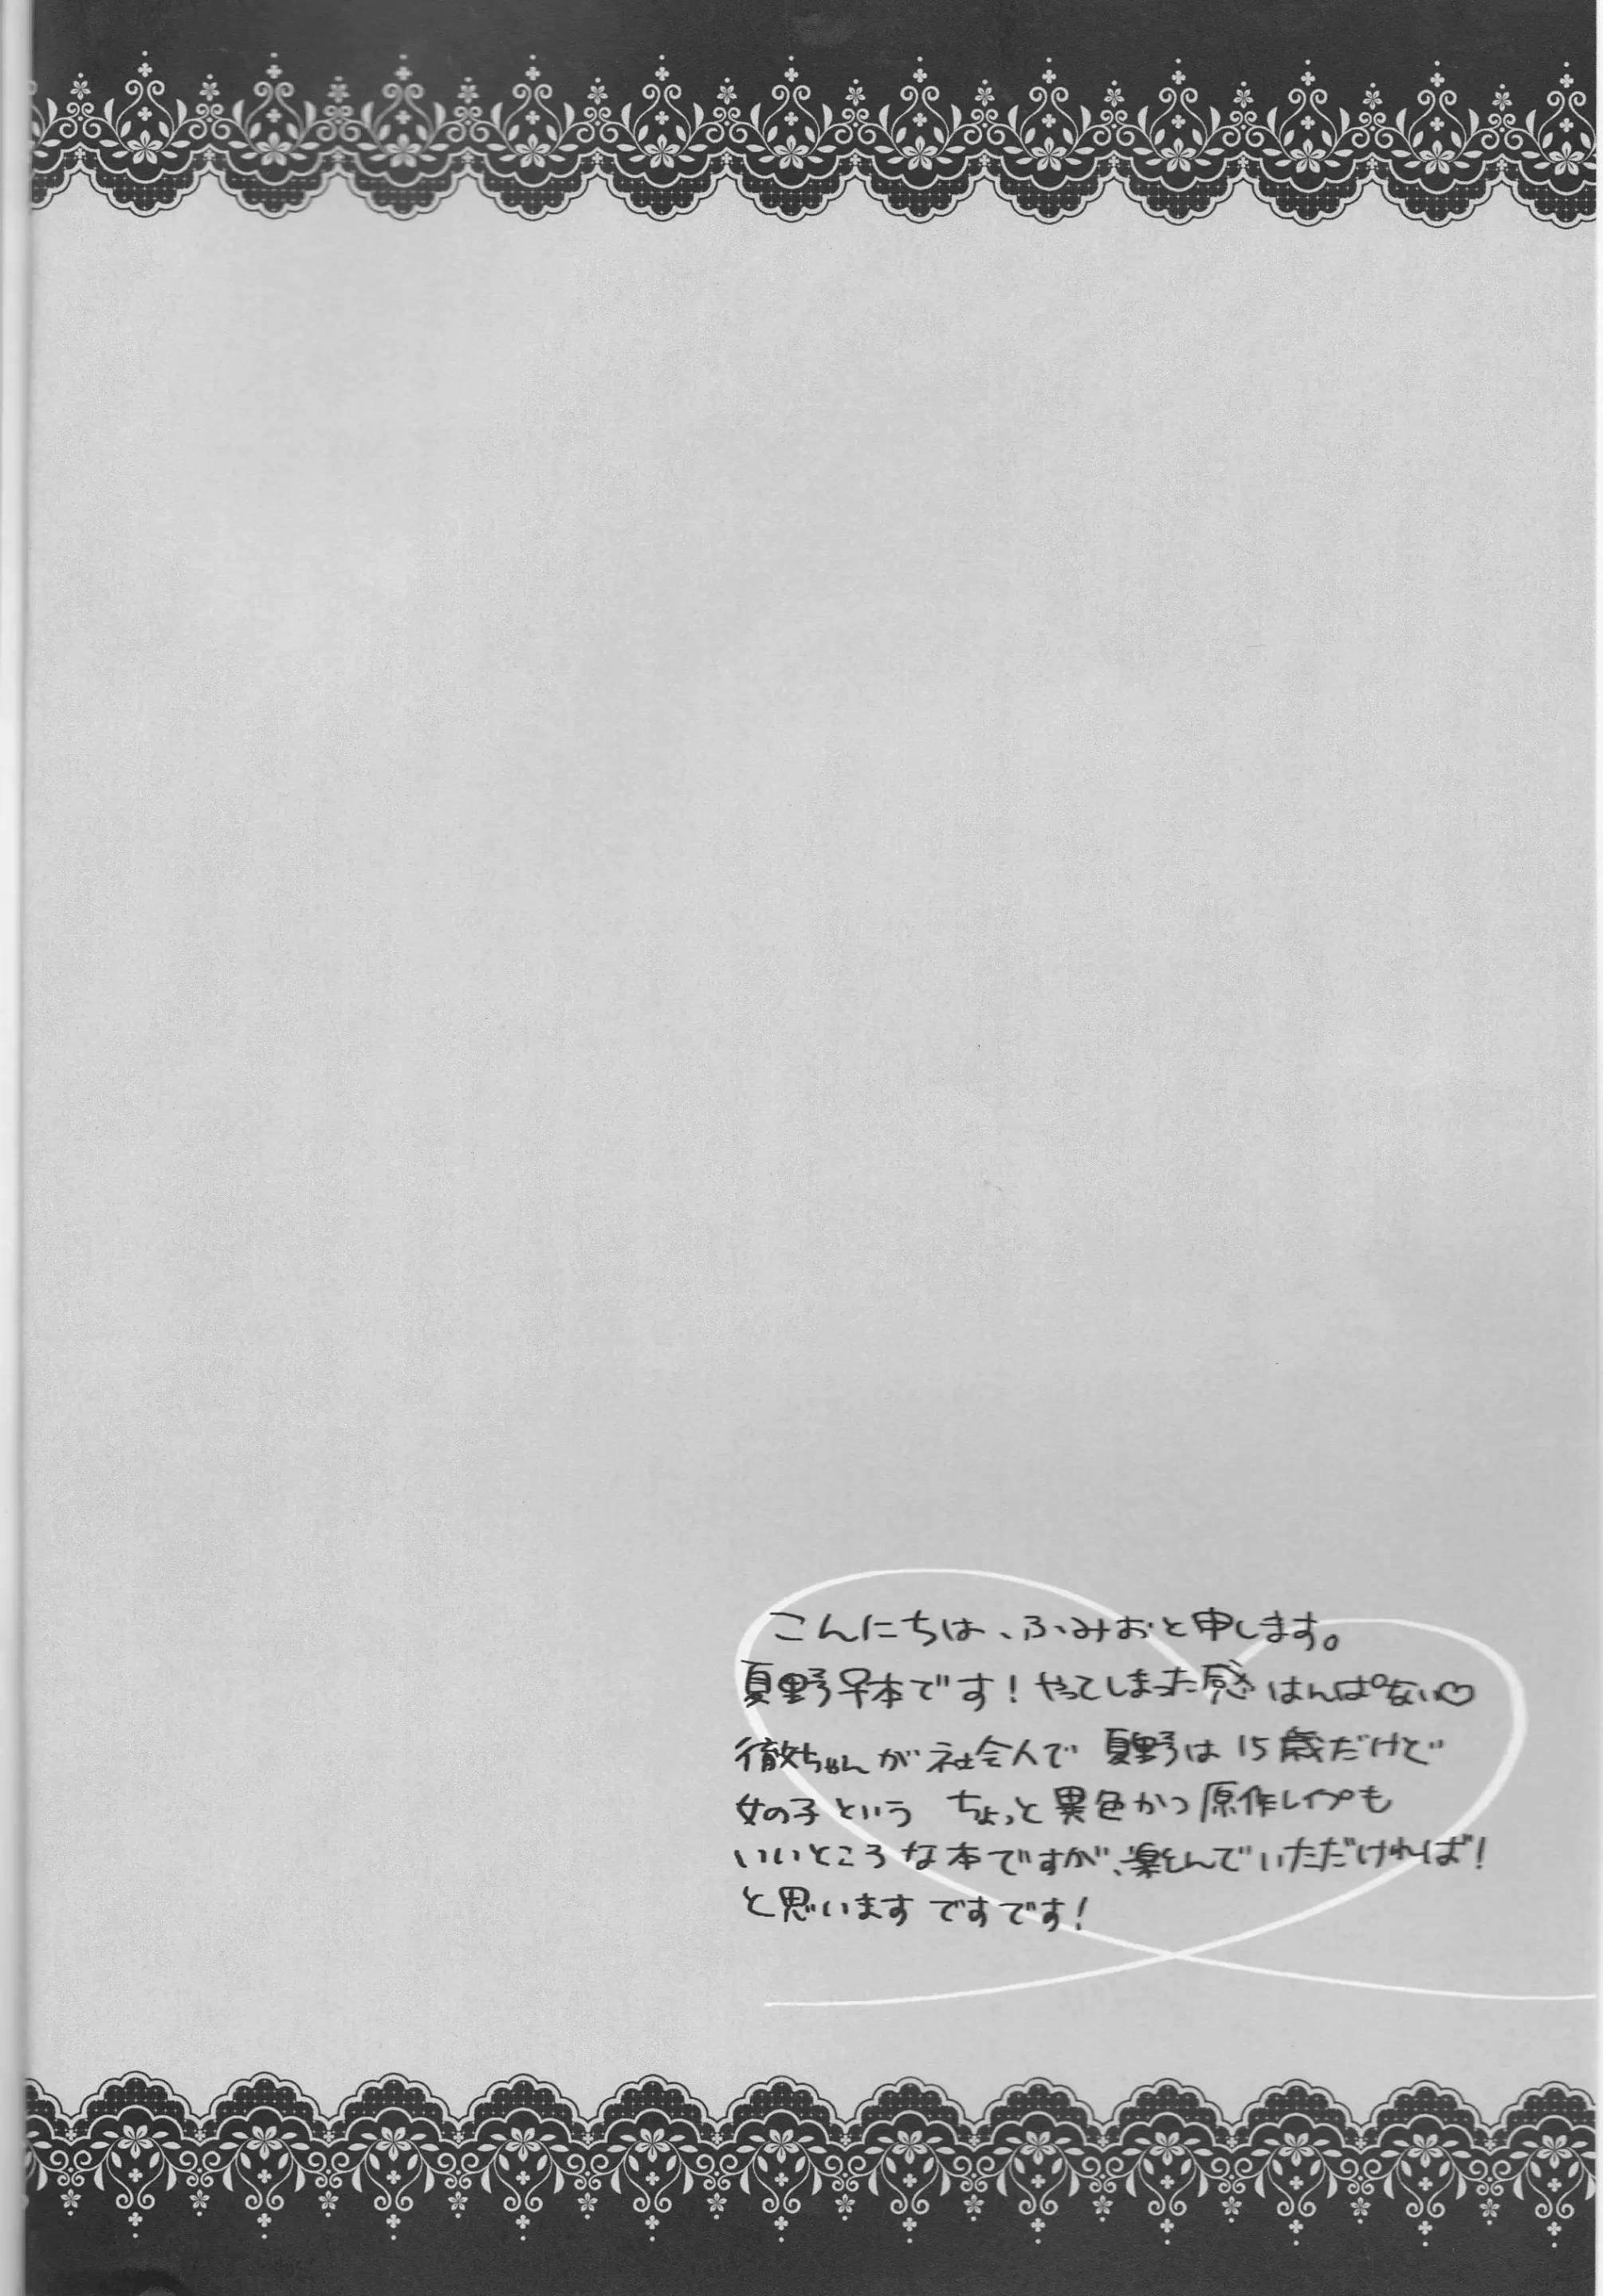 こんにちは、ふみおと申します。
夏野♀本です!やってしまった感はんぱない♡
徹ちゃんが社会人で夏野は15歳だけど
女の子という ちょっと異色かつ原作レイプも
いいところな本ですが、楽しんでいただければ!
と思います ですです!